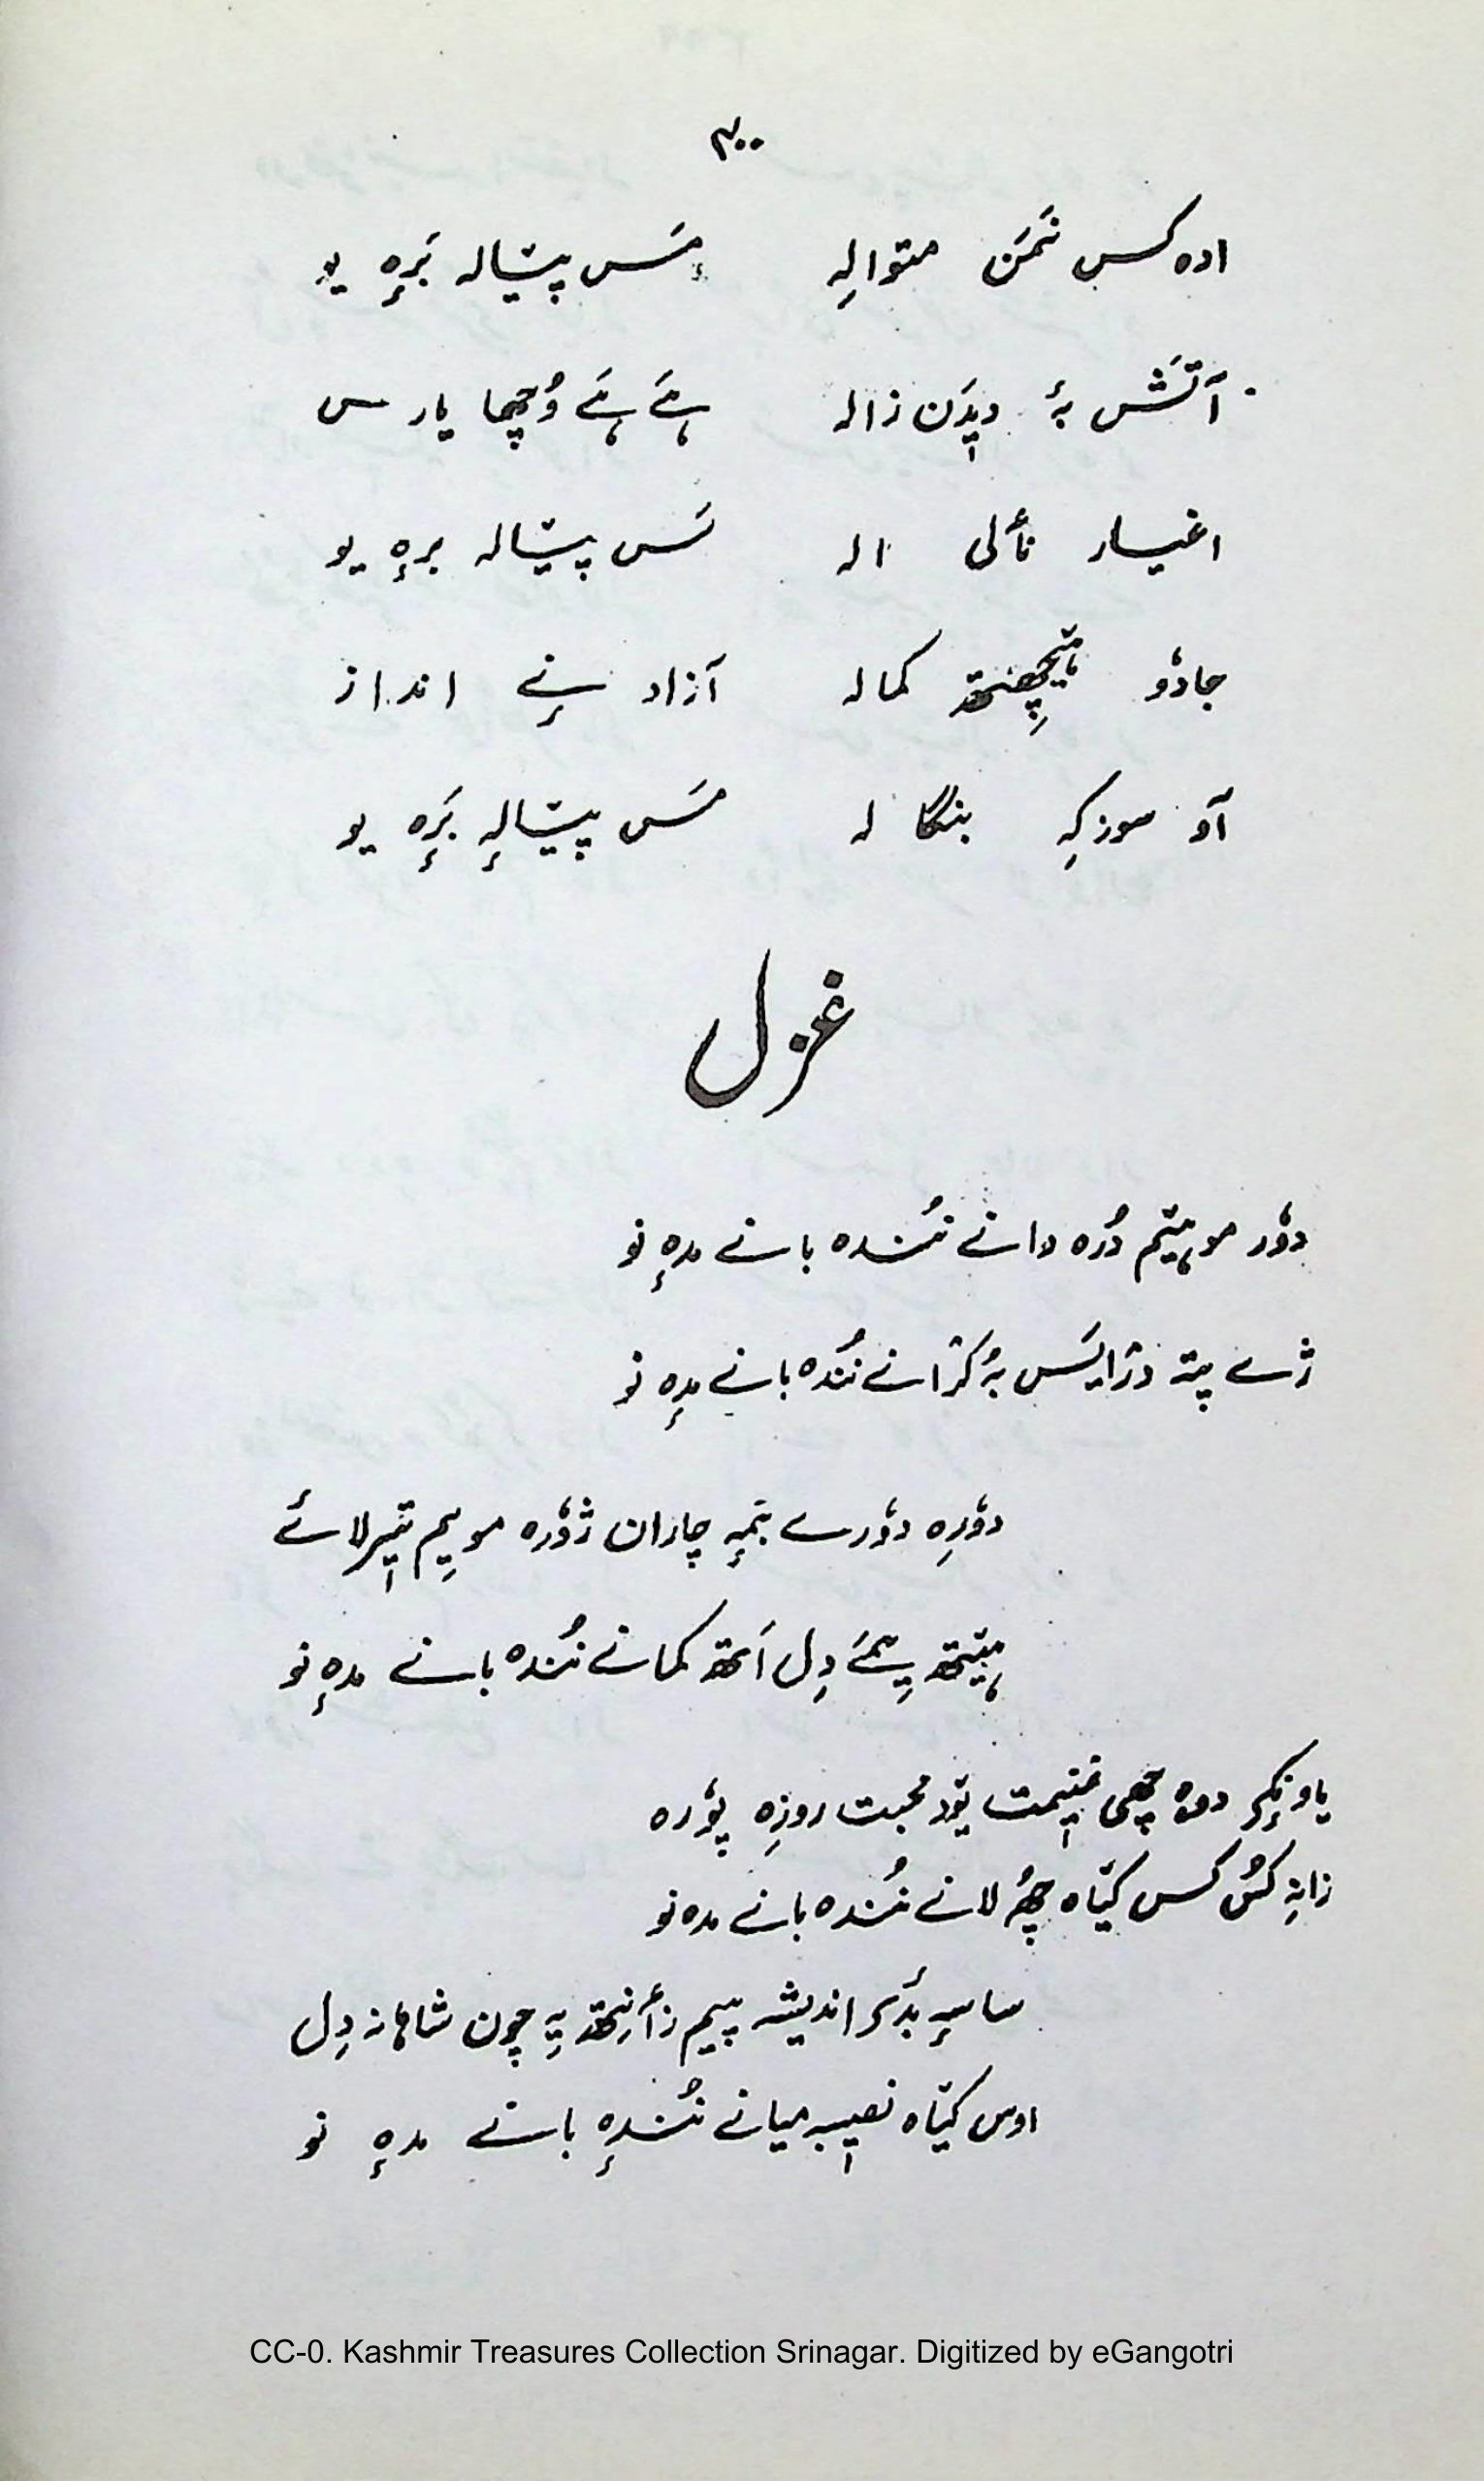 ۴۰۰
ادہ کس نَمَن متوالہِ مَس پیٚالہ بَرٕہ یو
آتَشَس بہٕ دیٖدَن زالہ ہَے ہَے وُچھا یارس
اغیار نألی الہ مَس پیٚالہ برٕہ یو
جادوٗ کمالہ آزاد نہِ انداز
آو سوزکہِ بنگالہ مَس پیٚالہٕ بَرٕہ یو
غزل
دوٗر موہیٚتم دُرہ دانے نُندہ بانے مدٕہ نو
ژے پتہ دژایَس بہٕ کرٛانے نُندہ بانے مدٕہ نو
دوٗرِہ دوٗرے تَمہِ چاران ژوٗرہ مویِم تیٖر لائے
ہیٚتھ یِمَے دِل اَتھ کمانے نُندہ بانے مدٕہ نو
یاونٕکر دوہ چھی غنیٖمت یوٚد محبت روزِہ پوٗرہ
زانہِ کُس کس کیٚاہ چھُہ لانے نُندہ بانے مدہ نو
ساسہٕ بدٔر اندیشہ ییم زأنِتھ یہِ چون شاہانہ دِل
اوس کیٚاہ نصیٖب میانے نُندہٕ بانے مدٕہ نو
CC-0. Kashmir Treasures Collection Srinagar. Digitized by eGangotri